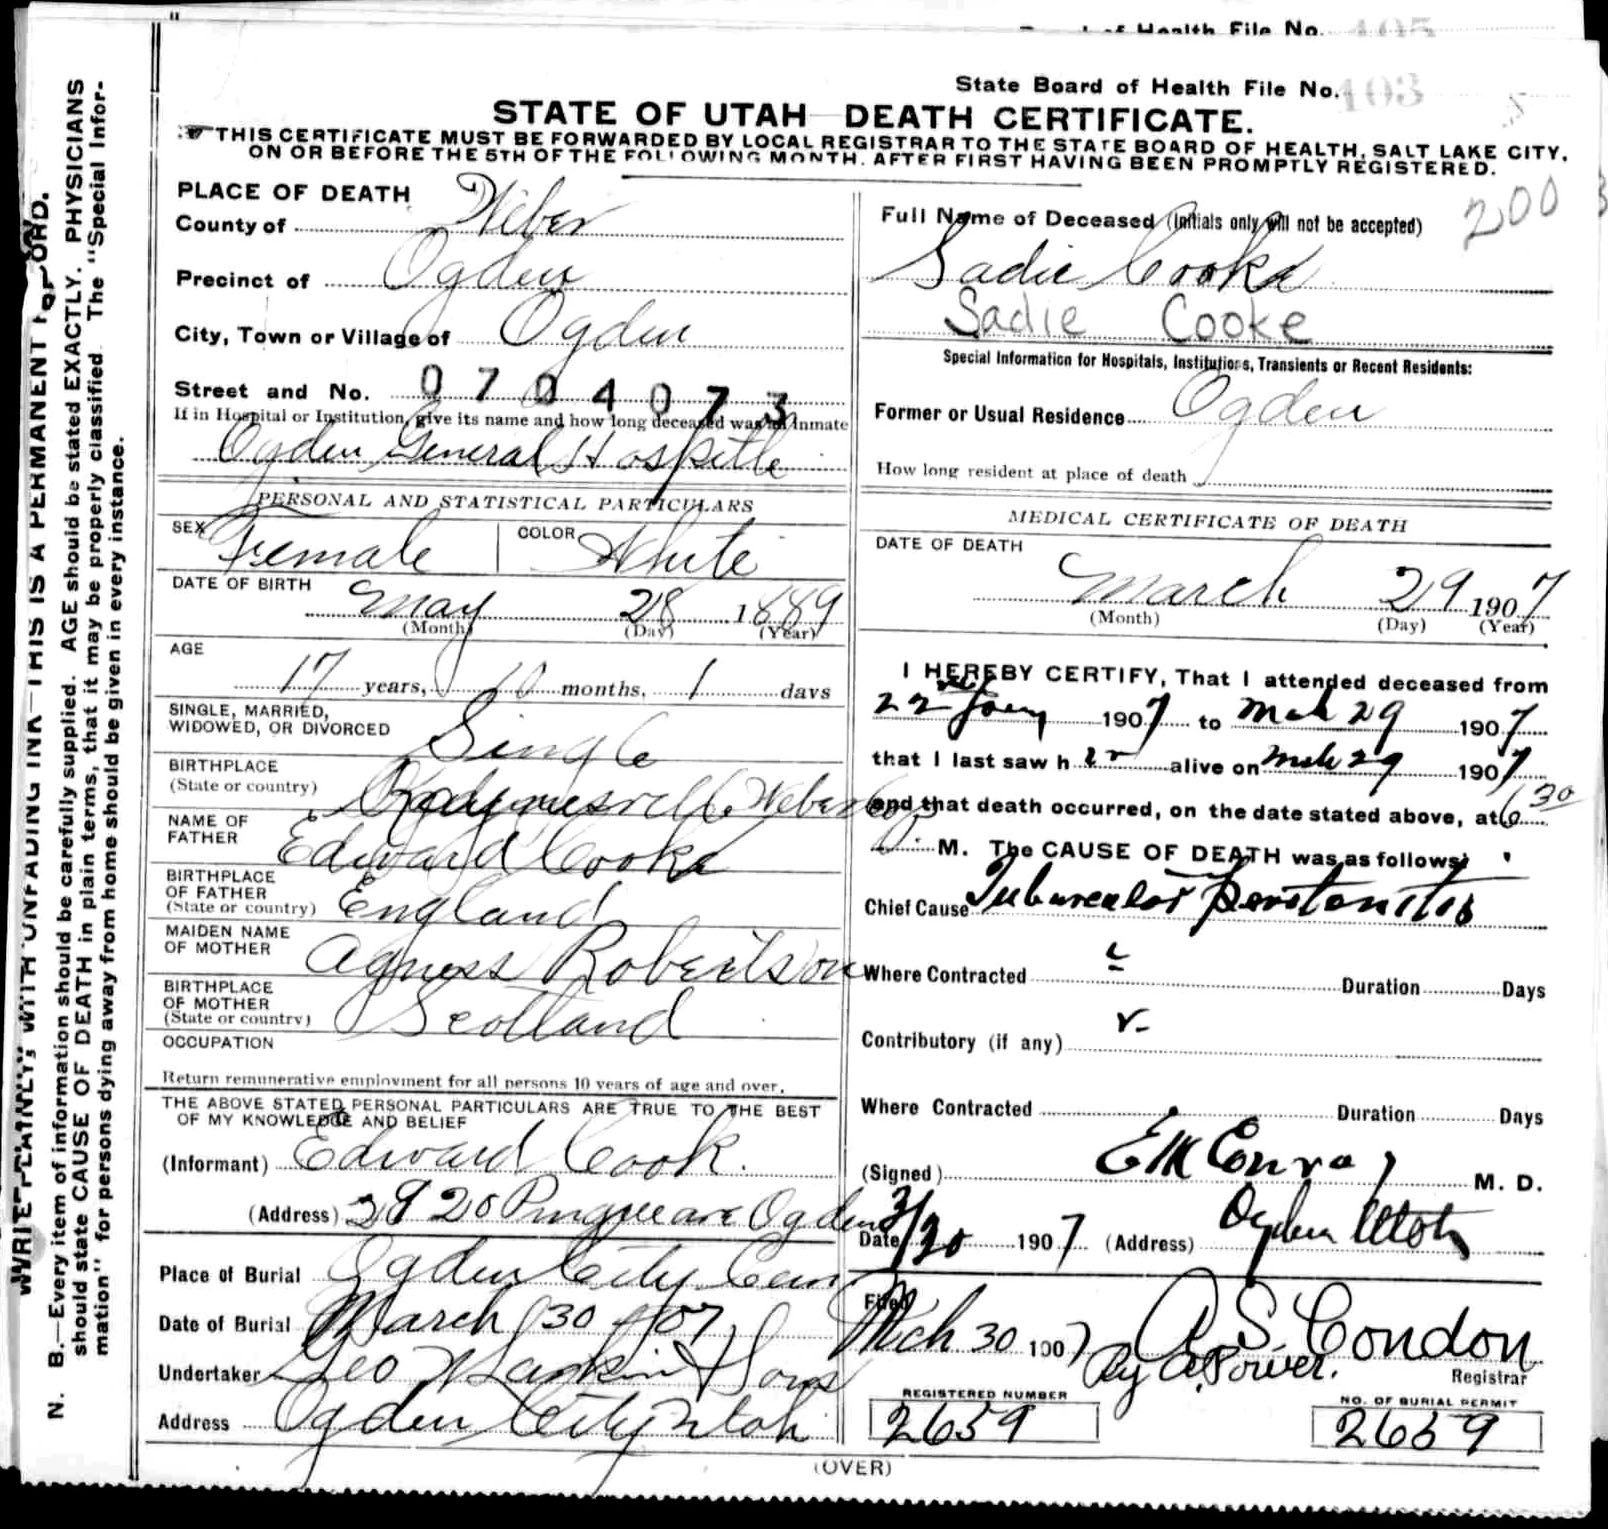 of Health File No. 405
State Board of Health File No. 403
STATE OF UTAH DEATH CERTIFICATE.
THIS CERTIFICATE MUST BE FORWARDED BY LOCAL REGISTRAR TO THE STATE BOARD OF HEALTH, SALT LAKE CITY,
ON OR BEFORE THE 5TH OF THE FOLLOWING MONTH, AFTER FIRST HAVING BEEN PROMPTLY REGISTERED.
WRITE PLAINLY, WITH UNFADING INK—THIS IS A PERMANENT RECORD.
N. B.—Every item of information should be carefully supplied. AGE should be stated EXACTLY. PHYSICIANS
should state CAUSE OF DEATH in plain terms, that it may be properly classified The "Special Infor-
mation" for persons dying away from home should be given in every instance.
PLACE OF DEATH
County of Weber
Precinct of Ogden
City, Town or Village of Ogden
Street and No. 0704073
If in Hospital or Institution, give its name and how long deceased was an Inmate
Ogden General Hospitle
PERSONAL AND STATISTICAL PARTICULARS
SEX Female COLOR White
DATE OF BIRTH
May 28 1889
(Month) (Day) (Year)
AGE
17 years, 10 months, 1 days
SINGLE, MARRIED,
WIDOWED, OR DIVORCED Single
BIRTHPLACE
(State or country) Weber Co
NAME OF
FATHER Edward Cooke
BIRTHPLACE
OF FATHER
(State or country) England
MAIDEN NAME
OF MOTHER Agness Robertson
BIRTHPLACE
OF MOTHER
(State or country) Scotland
OCCUPATION
Return remunerative employment for all persons 10 years of age and over.
THE ABOVE STATED PERSONAL PARTICULARS ARE TRUE TO THE BEST
OF MY KNOWLEDGE AND BELIEF
(Informant) Edward Cook.
(Address) 2920 Pingree ave Ogden
Place of Burial Ogden City Cem
Date of Burial March 30 - 07
Undertaker Geo W Larkin & Sons
Address Ogden City Utah
200
Full Name of Deceased (Initials only will not be accepted)
Sadie Cooke
Sadie Cooke
Special Information for Hospitals, Institutions, Transients or Recent Residents:
Former or Usual Residence Ogden
How long resident at place of death
MEDICAL CERTIFICATE OF DEATH
DATE OF DEATH
March 29 1907
(Month) (Day) (Year)
I HEREBY CERTIFY, That I attended deceased from
22nd Jany 1907 to Mch 29 1907
that I last saw her alive on Mch 29 1907
and that death occurred, on the date stated above, at 6 30
P. M. The CAUSE OF DEATH was as follows:
Chief Cause Tubercular Peritonitis
Where Contracted Duration Days
Contributory (if any)
Where Contracted Duration Days
(Signed) E M Conroy M. D.
Date 3/30 1907 (Address) Ogden Utah
Filed Mch 30 1907 A. S. Condon
By A. Power. Registrar
REGISTERED NUMBER
2659
NO. OF BURIAL PERMIT
2659
(OVER)